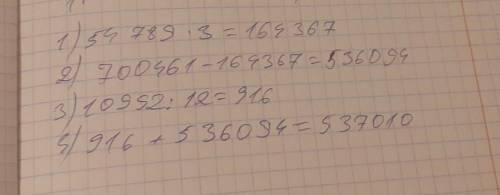 1) 54 789 · 3 = 164367
2) 700461 - 164367 = 536094
3) 10992 : 12 = 916
4) 916 + 536094 = 537010